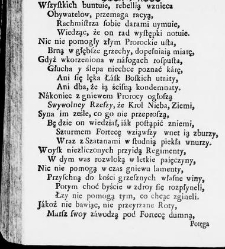 Wszyſtkich buntuie, rebellią wznieca
Obywatelow, przemaga racyą,
Rachmiſtrza ſobie darami uymuie,
Wiedząc, że on rad wyſtępki notuie.
Nic nie pomogły złym Prorockie uſta,
Brną w głębize grzechy, dopełnią miarę,
Gdyż wkorzeniona w nałogach roſpuſta,
Głucha y ślepa niechce poznać kárę,
Ani ſię lęka Łáſk Boſkich utráty,
Ani dba, że ią ściſną kondemnaty.
Nákoniec z gniewem Prorocy ogłoſzą
Swywolney Rzeſzy, że Krol Nieba, Ziemi,
Syna im zeſle, co go nie przeproſzą,
Bę dzie on wiedział, iák poſtąpić zniemi,
Szturmem Fortecę wziąwſzy wnet ią zburzy,
Wraz z Szatanami w ſtudnią piekła wnurzy.
Woyſk niezliczonych przyidą Regimenty,
W dym was rozwloką w letkie paięczyny,
Nic nie pomogą w czas gniewu lamenty,
Przyſchną do kości grzeſznych właſne winy,
Potym choć byście w zdroy ſię rozpłyneli,
Łzy nie pomogą tym, co chcąc zginęli.
Jákoż nie bawiąc, nie przeyrzane Roty,
Maſz ſwoy záwodzą pod Fortecę dumną,
Potęga